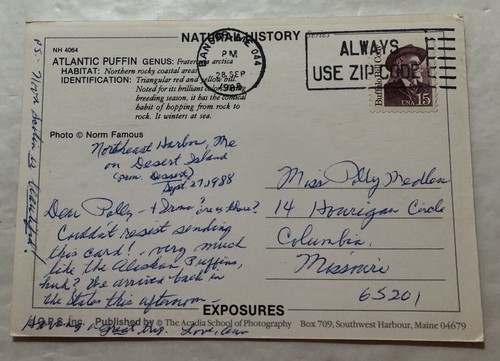 NATURAL HISTORY
NH 4064
ATLANTIC PUFFIN GENUS: Fratercula arctica
HABITAT: Northern rocky coastal areas
IDENTIFICATION: Triangular red and yellow bill.
Noted for its brilliant color
breeding season, it has the comical
habit of hopping from rock to
rock. It winters at sea.
Photo © Norm Famous
ME 044
PM
28 SEP
1988
ALWAYS
USE ZIP CODE
Buffalo Bill Cody
USA 15
Northeast Harbor, Me
on Desert Island
Sept. 27, 1988
Dear Polly - + Drma? are u there?
Couldn't resist sending
this card! - very much
like the Alaskan Puffins,
huh? We arrived back in
the States this afternoon -
Having a great trip. Love, Ann
PS - Nova Scotia is beautiful!
Miss Polly Medlen
14 Hourigan Circle
Columbia,
Missouri
65201
EXPOSURES
Inc. Published by © The Acadia School of Photography Box 709, Southwest Harbour, Maine 04679